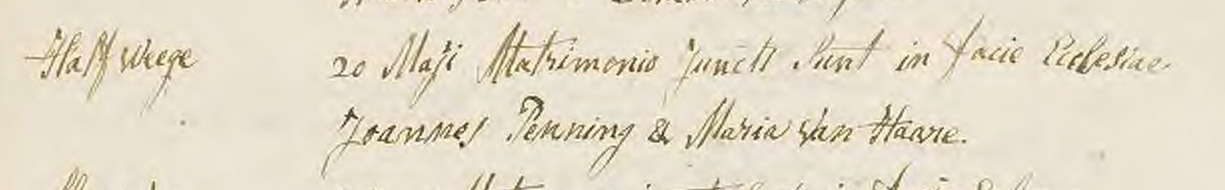 Halfweege 20 Maji Matrimonio Juncti Sunt in facie Ecclesiae
Joannes Penning & Maria van Haare.